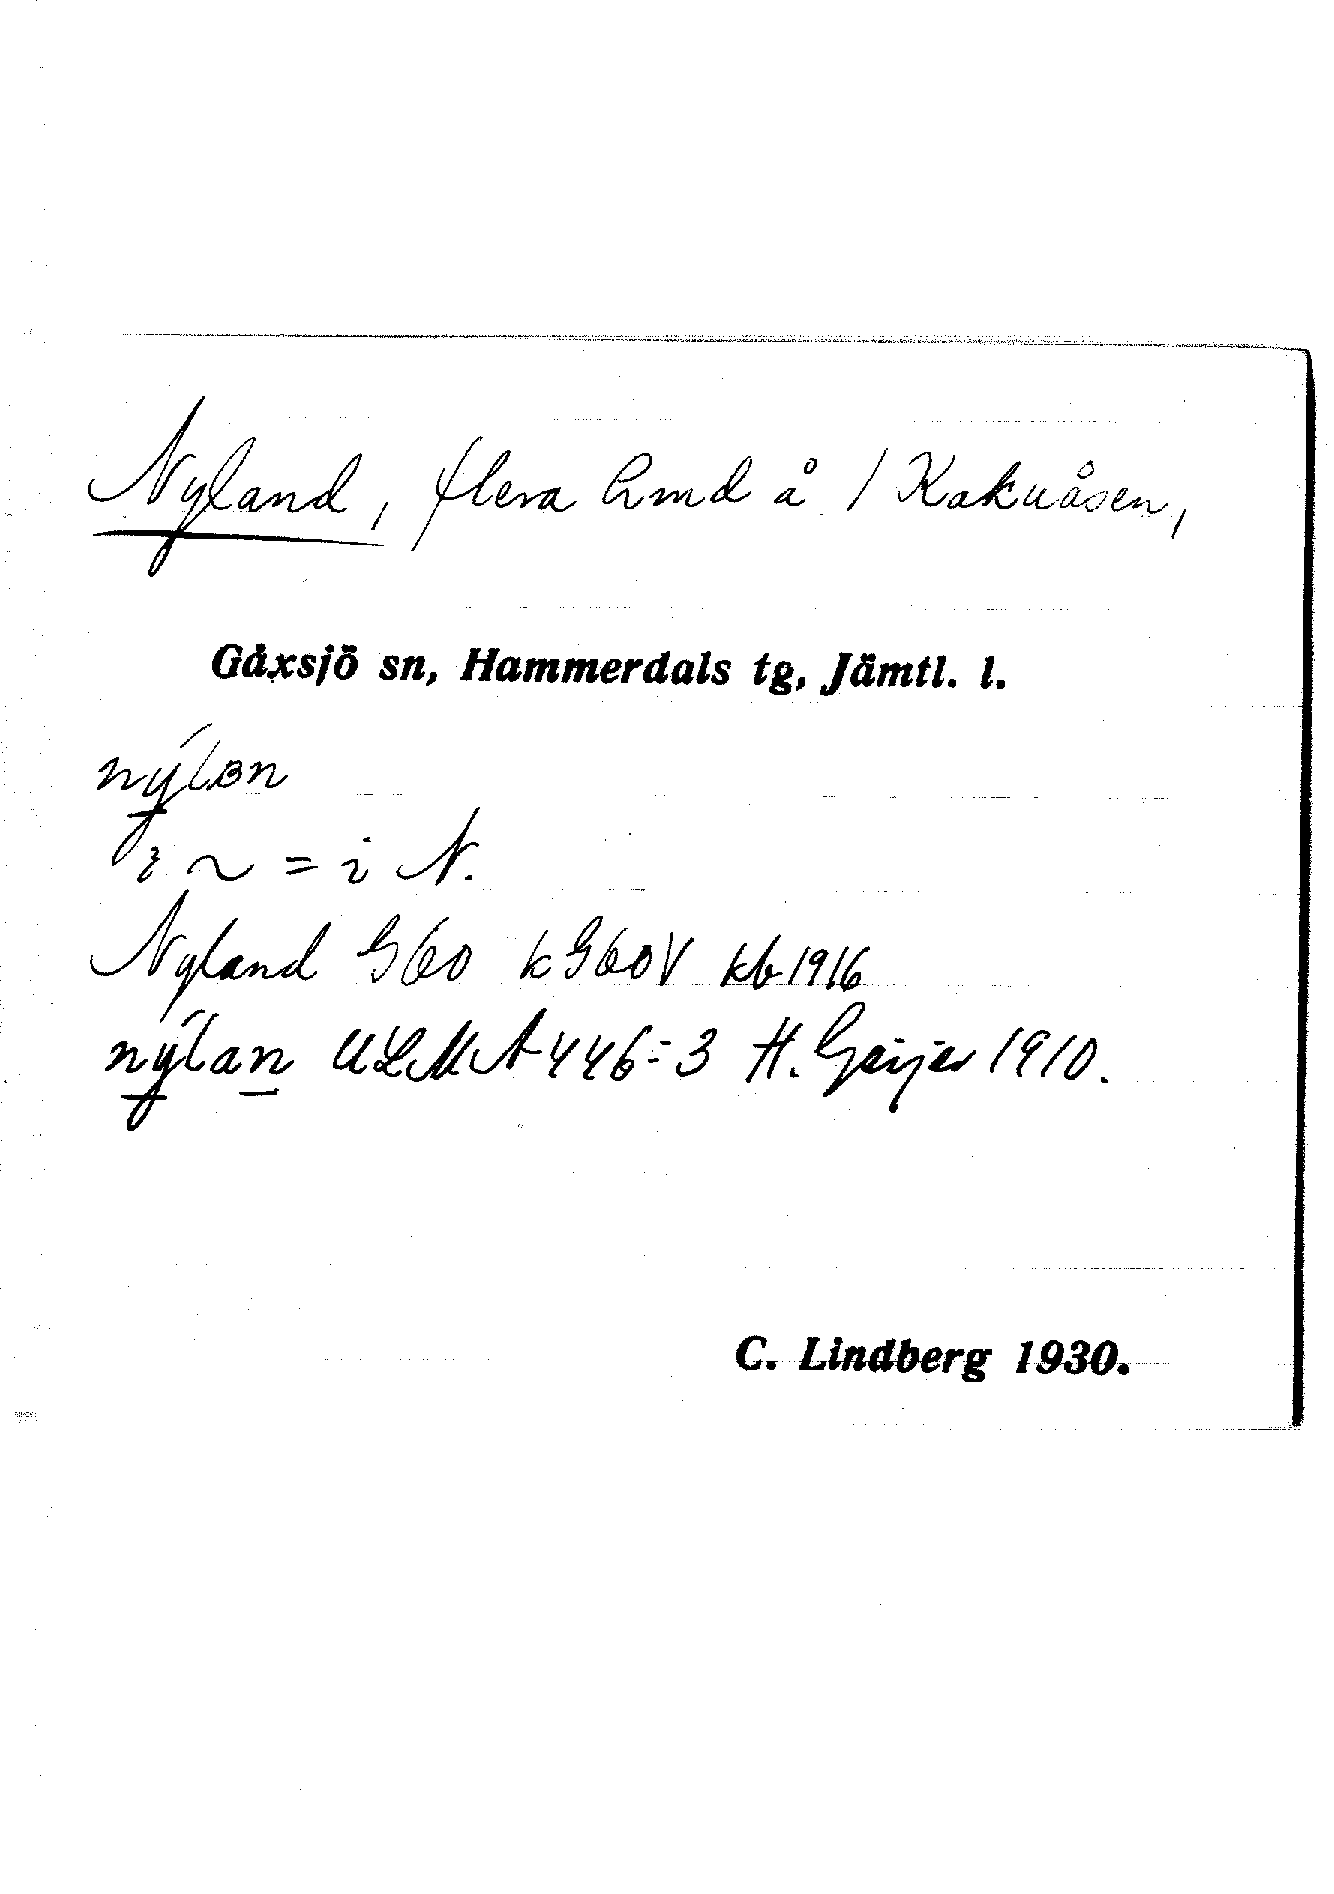 Nyland, flera hmd å 1 Kakuåsen,
Gåxsjö sn, Hammerdals tg, Jämtl. l.
nýlan
i ~ = i N.
Nyland G60 kG60V kb 1916
nýlan ULMA 446:3 H. Geijer 1910.
C. Lindberg 1930.